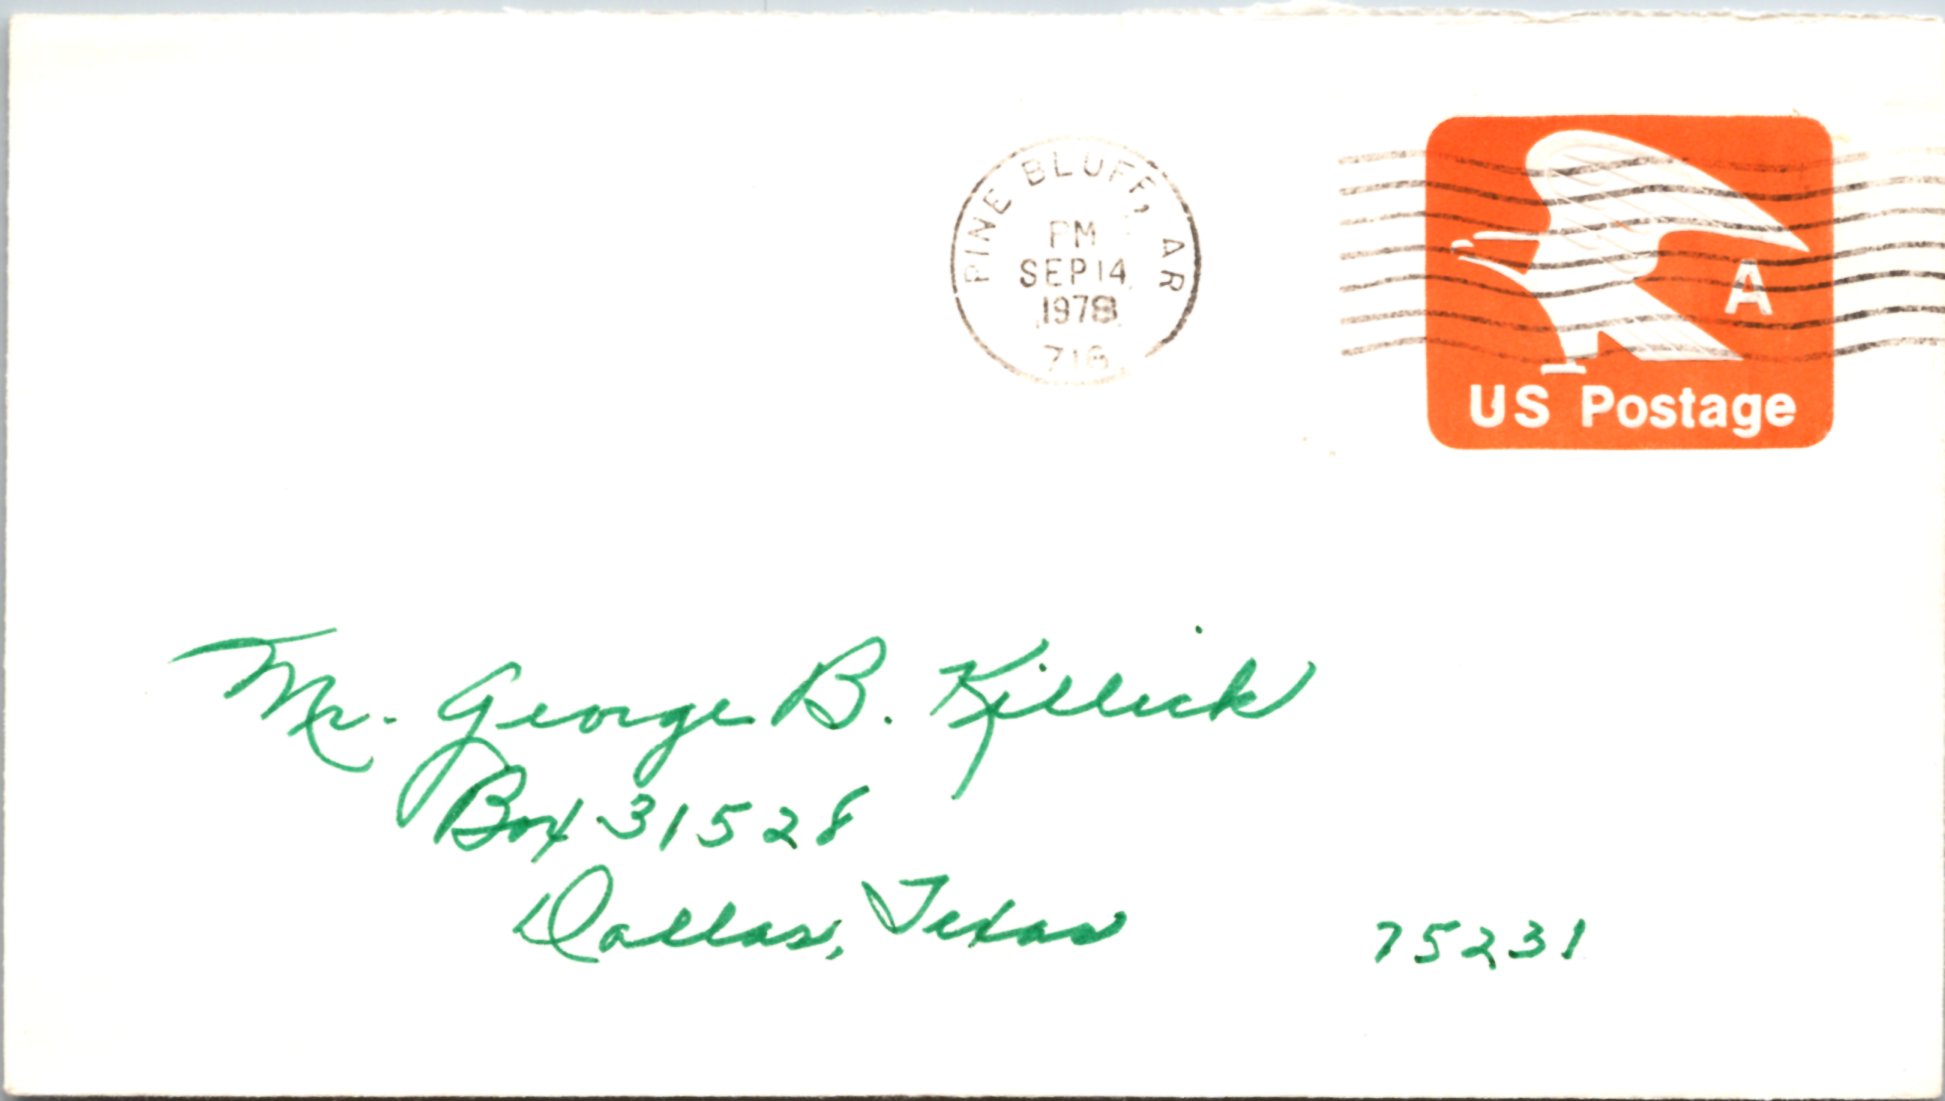 PINE BLUFF, AR
PM
SEP 14
1978
716
A
US Postage
Mr. George B. Killick
Box 31528
Dallas, Texas 75231